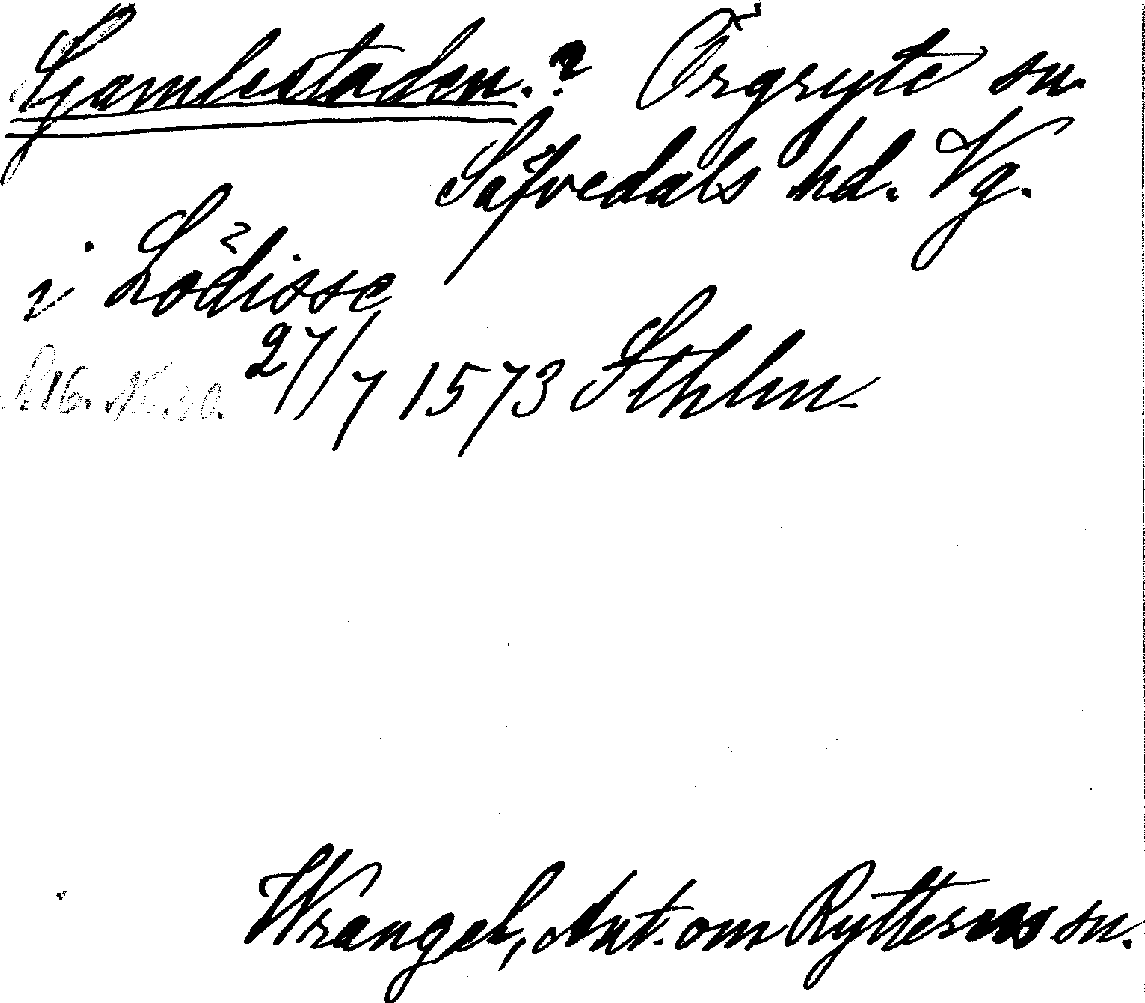 Gamlestaden.? Örgryte sn.
Säfvedals hd. Vg.
i Lödisse
27/7 1573 Sthlm
Wrangel, Ant. om Rytterns sn.